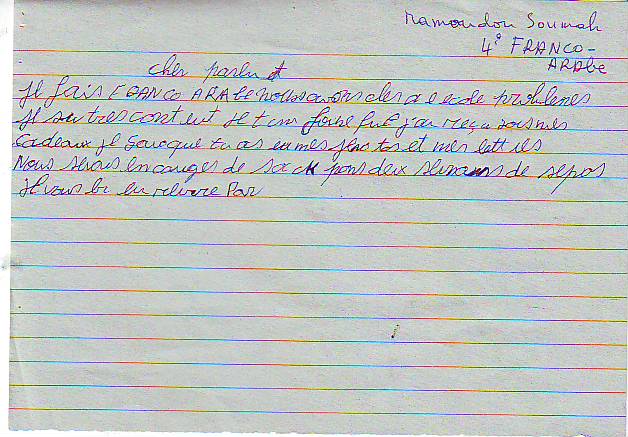 Mamoudou Soumah
4° FRANCO-
ARABE
cher parent
Je fais FRANCO ARABE nous avons des a e ecole problemes
Je su tres content Je t'an fore fut j'ai reçu tous mes
cadeaux Je que tu as eu mes photos et mes lettres
Nous serais en conges de pons deux semains de repos
Je vous en Par